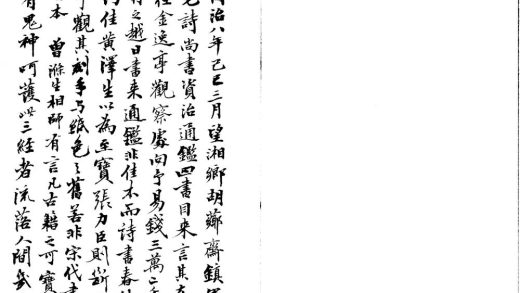 同治八年己巳三月望湘鄉胡薌齋鎮軍
詩尚書資治通鑑四書目來言其
在金逸亭觀察處向予易錢三萬
有之越日書來通鑑非佳本而詩書春
佳黃澤生以為至寶張力臣則斷
觀其刻手與紙色之舊若非宋代書
本曾滌生相師有言凡古籍之可寶
有鬼神呵護此三經者流落人間